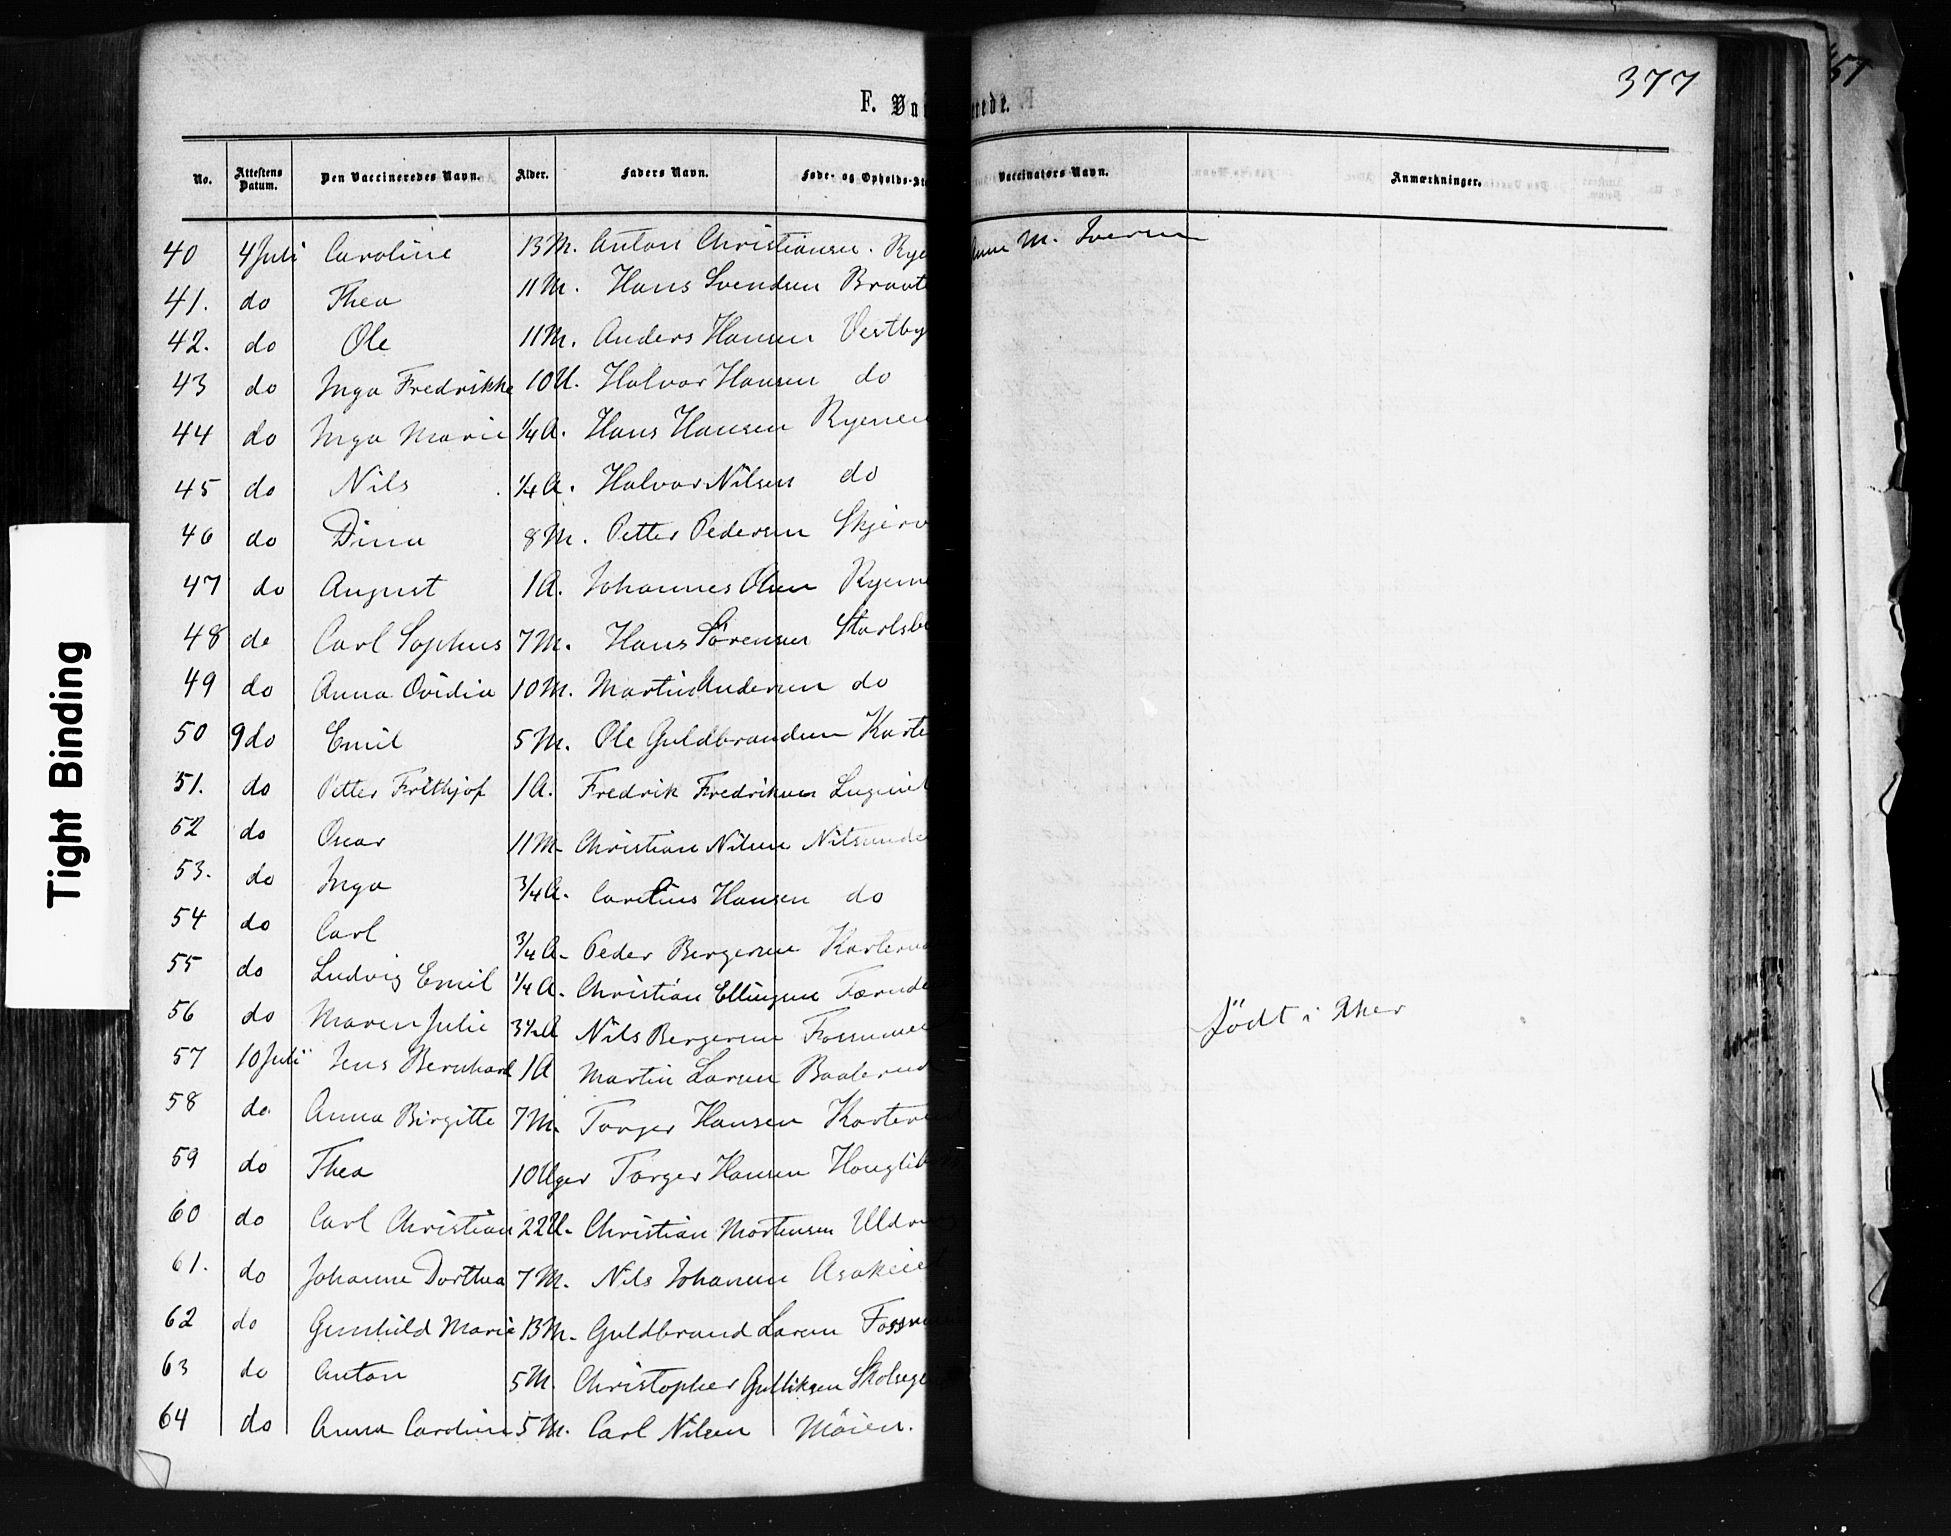 377
57
F. Vac erede.
No. Attestens Datum. Den Vaccineredes Navn. Alder. Faders Navn. Føde- og Opholds-Ste Vaccinators Navn. Anmærkninger.
40 4 Juli Caroline 13 M. Anton Christiansen. Rye M. Iversen
41. do Thea 11 M. Hans Svendsen Braate
42. do Ole 11 M. Anders Hansen Vestby
43 do Inga Fredrikke 10 U. Halvor Hansen do
44 do Inga Marie 1/4 A. Hans Hansen Ryenen
45 do Nils 1/4 A. Halvor Nilsen do
46 do Dina 8 M. Petter Pedersen Skjerv
47 do August 1 A. Johannes Olsen Ryene
48 do Carl Sophus 7 M. Hans Sørensen Starlsb
49 do Anna Ovidia 10 M. Martin Andersen do
50 9 do Emil 5 M. Ole Guldbrandsen Karte
51. do Petter Frithjof 1 A. Fredrik Fredriksen
52 do Oscar 11 M. Christian Nilsen Nitsunde
53. do Inga 3/4 A. Carelius Hansen do
54 do Carl 3/4 A. Peder Bergersen Karteru
55 do Ludvig Emil 1/4 A. Christian Ellingsen Færnde
56 do Maren Julie 3 1/2 A Nils Bergersen Fossume født i Aker
57 10 Juli Jens Bernhard 1 A Martin Larsen Baaterud
58 do Anna Birgitte 7 M. Torger Hansen Karteru
59 do Thea 10 Uger Torger Hansen Hauglib
60 do Carl Christian 22 U. Christian Mortensen Uldr
61. do Johanne Dorthea 7 M. Nils Johansen Asakeie
62 do Gunhild Marie 13 M. Guldbrand Larsen Fossu
63 do Anton 5 M. Christopher Gulliksen Skolsege
64 do Anna Caroline 5 M. Carl Nilsen Møien.
Tight Binding